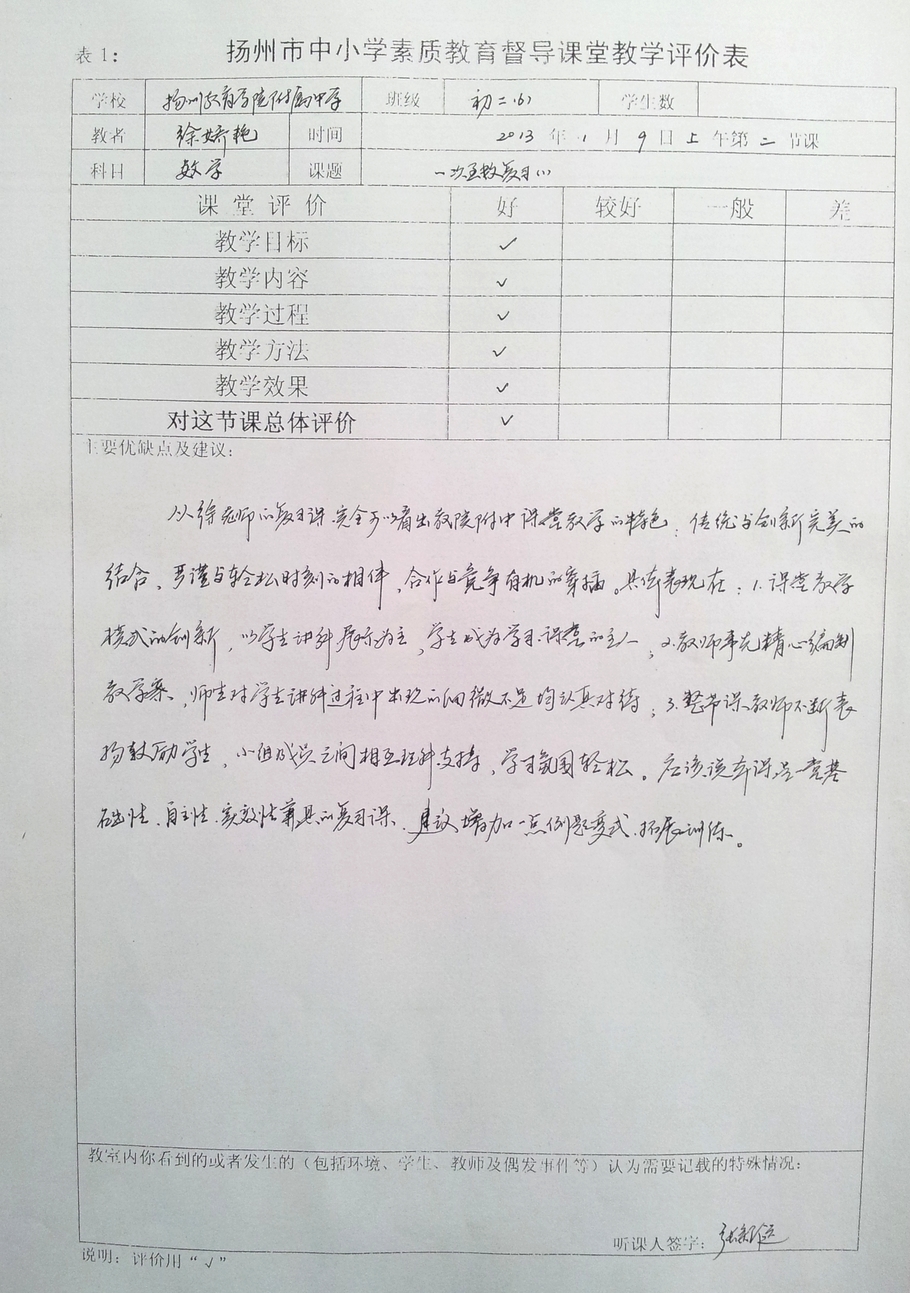 表 1： 扬州市中小学素质教育督导课堂教学评价表
学校 扬州教育学院附属中学 班级 初二(6) 学生数
教者 徐娇艳 时间 2013 年 1 月 9 日 上 午第 二 节课
科目 数学 课题 一次函数复习(1)
课 堂 评 价 好 较好 一般 差
教学目标 ✓
教学内容 ✓
教学过程 ✓
教学方法 ✓
教学效果 ✓
对这节课总体评价 ✓
主要优缺点及建议：
从徐老师的复习课,完全可以看出教院附中课堂教学的特色：传统与创新完美的
结合、严谨与轻松时刻的相伴,合作与竞争有机的穿插。具体表现在：1.课堂教学
模式的创新,以学生讲解展示为主,学生成为学习课堂的主人；2.教师事先精心编制
教学案,师生对学生讲解过程中出现的细微不足均认真对待；3.整节课教师不断表
扬鼓励学生,小组成员之间相互理解支持,学习氛围轻松。应该说本课是一堂基
础性、自主性、实效性兼具的复习课.建议增加一点例题变式、拓展训练。
教室内你看到的或者发生的（包括环境、学生、教师及偶发事件等）认为需要记载的特殊情况：
听课人签字：
说明：评价用“√”